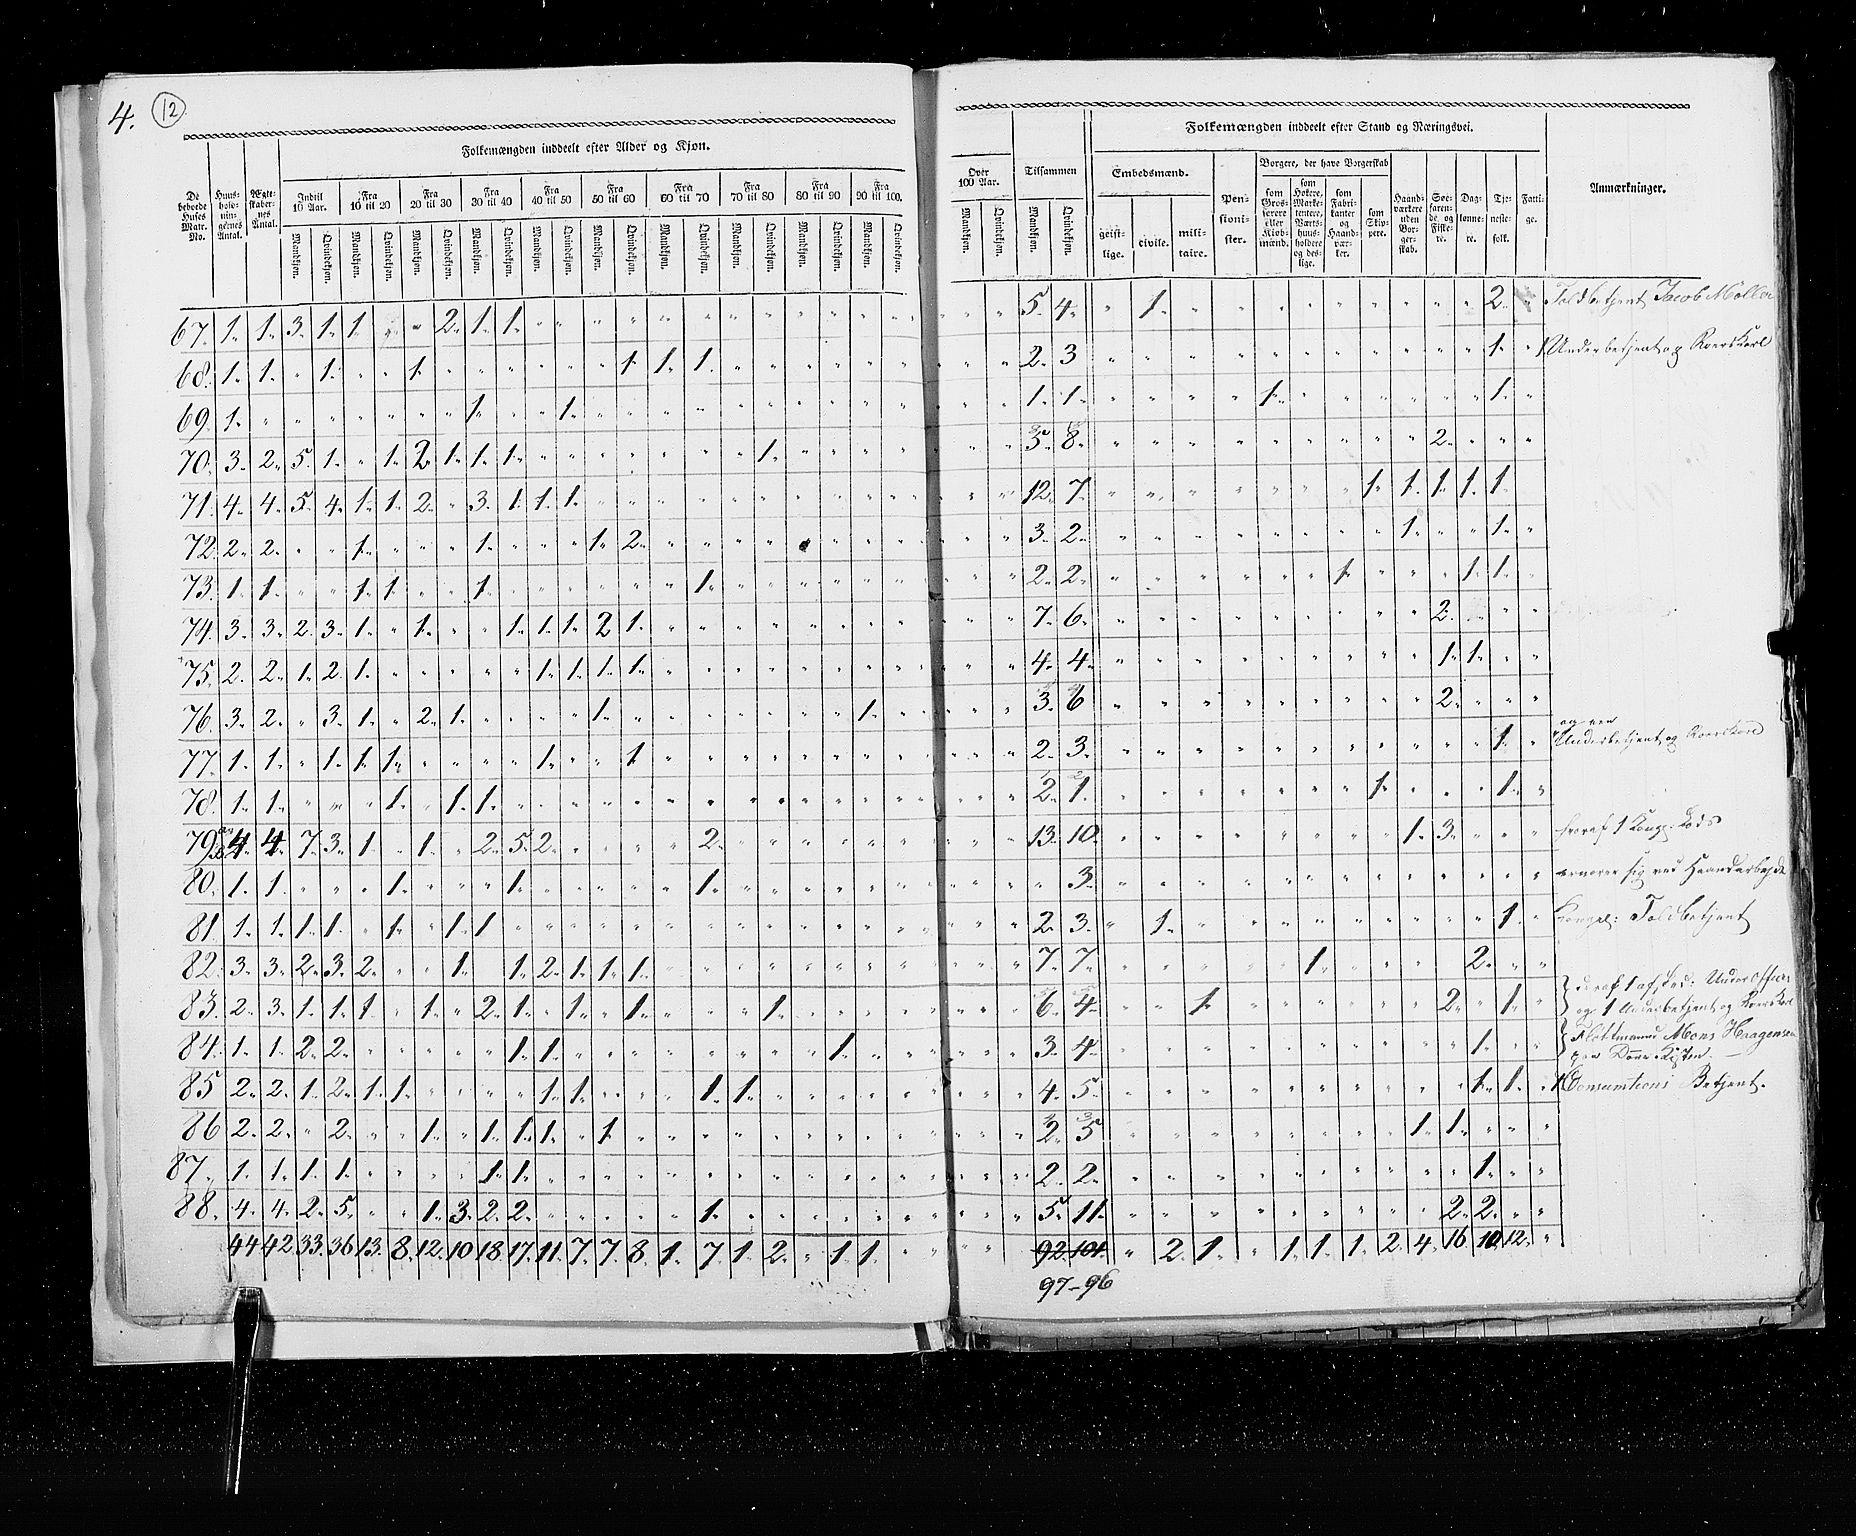 4. 12
Folkemængden inddeelt efter Alder og Kjøn.
De beboede Huses Matr. No. | Huusholdningernes Antal. | Ægteskabernes Antal. | Indtil 10 Aar. | Fra 10 til 20 | Fra 20 til 30 | Fra 30 til 40 | Fra 40 til 50 | Fra 50 til 60 | Fra 60 til 70 | Fra 70 til 80 | Fra 80 til 90 | Fra 90 til 100.
Mandkjøn. Qvindekjøn. Mandkjøn. Qvindekjøn. Mandkjøn. Qvindekjøn. Mandkjøn. Qvindekjøn. Mandkjøn. Qvindekjøn. Mandkjøn. Qvindekjøn. Mandkjøn. Qvindekjøn. Mandkjøn. Qvindekjøn. Mandkjøn. Qvindekjøn. Mandkjøn. Qvindekjøn.
67. 1. 1. 3. 1. 1. " " 2. 1. 1. " " " " " " " " " " " "
68. 1. 1. " 1. " " 1. " " " " " " 1. 1. 1. " " " " " "
69. 1. " " " " " " " 1. " " 1. " " " " " " " " " "
70. 3. 2. 5. 1. " 1. 2. 1. 1. 1. " " " " " " " 1. " " " "
71. 4. 4. 5. 4. 1. 1. 2. " 3. 1. 1. 1. " " " " " " " " " "
72. 2. 2. " " 1. " " " 1. " " " 1. 2. " " " " " " " "
73. 1. 1. " " 1. 1. " " 1. " " " " " " 1. " " " " " "
74. 3. 3. 2. 3. 1. " 1. " " 1. 1. 1. 2 1. " " " " " " " "
75. 2. 2. 1. 2. 1. " " " " " 1. 1. 1. 1. " " " " " " " "
76. 3. 2. " 3. 1. " 2. 1. " " " " 1. " " " " " " " 1. "
77. 1. 1. " 1. 1. 1. " " " " 1. " " 1. " " " " " " " "
78. 1. 1. " " " 1. " 1. 1. " " " " " " " " " " " " "
79 4. 4. 7. 3. 1 " 1. " 2. 5. 2. " " " " 2. " " " " " "
80. 1. 1. " " " 1. " " " 1. " " " " " 1. " " " " " "
81. 1. 1. 1. 1. " 1. " 1. 1. " " " " " " " " " " " " "
82. 3. 3. 2. 3. 2. " " 1. 1. 2. 1. 1. 1. " " " " " " " "
83. 2. 3. 1. 1. 1. " 1. " 2. 1. " 1. " 1. " " " 1. " " " "
84. 1. 1. 2. 2. " " " " " 1. 1. " " " " " " " " 1. " "
85 2. 2. 1. 2. 1. 1. " " " " 1. 1. " " " 1. 1. " " " " "
86 2. 2. " 2. " " 1. " 1. 1. 1. " 1. " " " " " " " " "
87. 1. 1. 1. 1. " " " " 1. 1. " " " " " " " " " " " "
88. 4. 4. 2. 5. " " 1. 3. 2. 2. " " " " " 1. " " " " " "
44 42. 33. 36 13. 8. 12. 10 18. 17. 11. 7. 7. 8. 1. 7. 1. 2. " 1. 1. "
Folkemængden inddeelt efter Stand og Næringsvei.
Over 100 Aar. | Tilsammen | Embedsmænd. | Pensionister. | Borgere, der have Borgerskab | Haandværkere uden Borgerskab. | Søefarende og Fiskere. | Daglønnere. | Tjenestefolk. | Fattige. | Anmærkninger.
Mandkjøn. Qvindekjøn. Mandkjøn. Qvindekjøn. geistlige. civile. militaire. som Grosserere eller Kiøbmænd. som Høkere, Marketentere, Værtshuusholdere og deslige. som Fabrikanter og Haandværker. som Skippere.
" " 5. 4. " 1. " " " " " " " " " 2. " Toldbetjent Jacob Møller
" " 2. 3 " " " " " " " " " " " 1. " Underbetjent og Roerskarl
" " 1. 1. " " " " 1. " " " " " " 1. "
" " 5. 8. " " " " " " " " " 2. " " "
" " 12. 7. " " " " " " " 1. 1. 1. 1. 1.
" " 3. 2. " " " " " " " " 1. " " 1. "
" " 2. 2. " " " " " " 1. " " " 1. 1. "
" " 7. 6. " " " " " " " " " 2. " " "
" " 4. 4. " " " " " " " " " 1. 1. " "
" " 3. 6 " " " " " " " " " 2. " " "
" " 2. 3. " " " " " " " " " " " 1. " Underbetjent og Roerskarl
" " 2. 1. " " " " " " " 1. " " " 1. "
" " 13. 10. " " " " " " " " 1. 3. " " " hvoraf 1 Kongl. Lods
" " " 3. " " " " " " " " " " " " " ernærer sig ved Haandarbejde
" " 2. 3. " 1. " " " " " " " " " 1. " Kongel: Toldbetjent
" " 7. 7. " " " " " 1. " " " " 2. " "
" " 6. 4. " " 1. " " " " " " 2. " 1. " deraf 1 afsked: Underofficer
og 1 Underbetjent og Roerskarl
" " 3. 4. " " " " " " " " " " 1. " " Flottmand Mons Haagensen
" " 4. 5. " " " " " " " " " " 1. 1. " Consumtions Betjent.
" " 2. 5 " " " " " " " " 1. 1. " " "
" " 2. 2. " " " " " " " " " " 1. " "
" " 5. 11. " " " " " " " " " 2. 2. " "
" " 92. 101. " 2. 1. " 1. 1. 1. 2. 4. 16. 10. 12. "
97-96